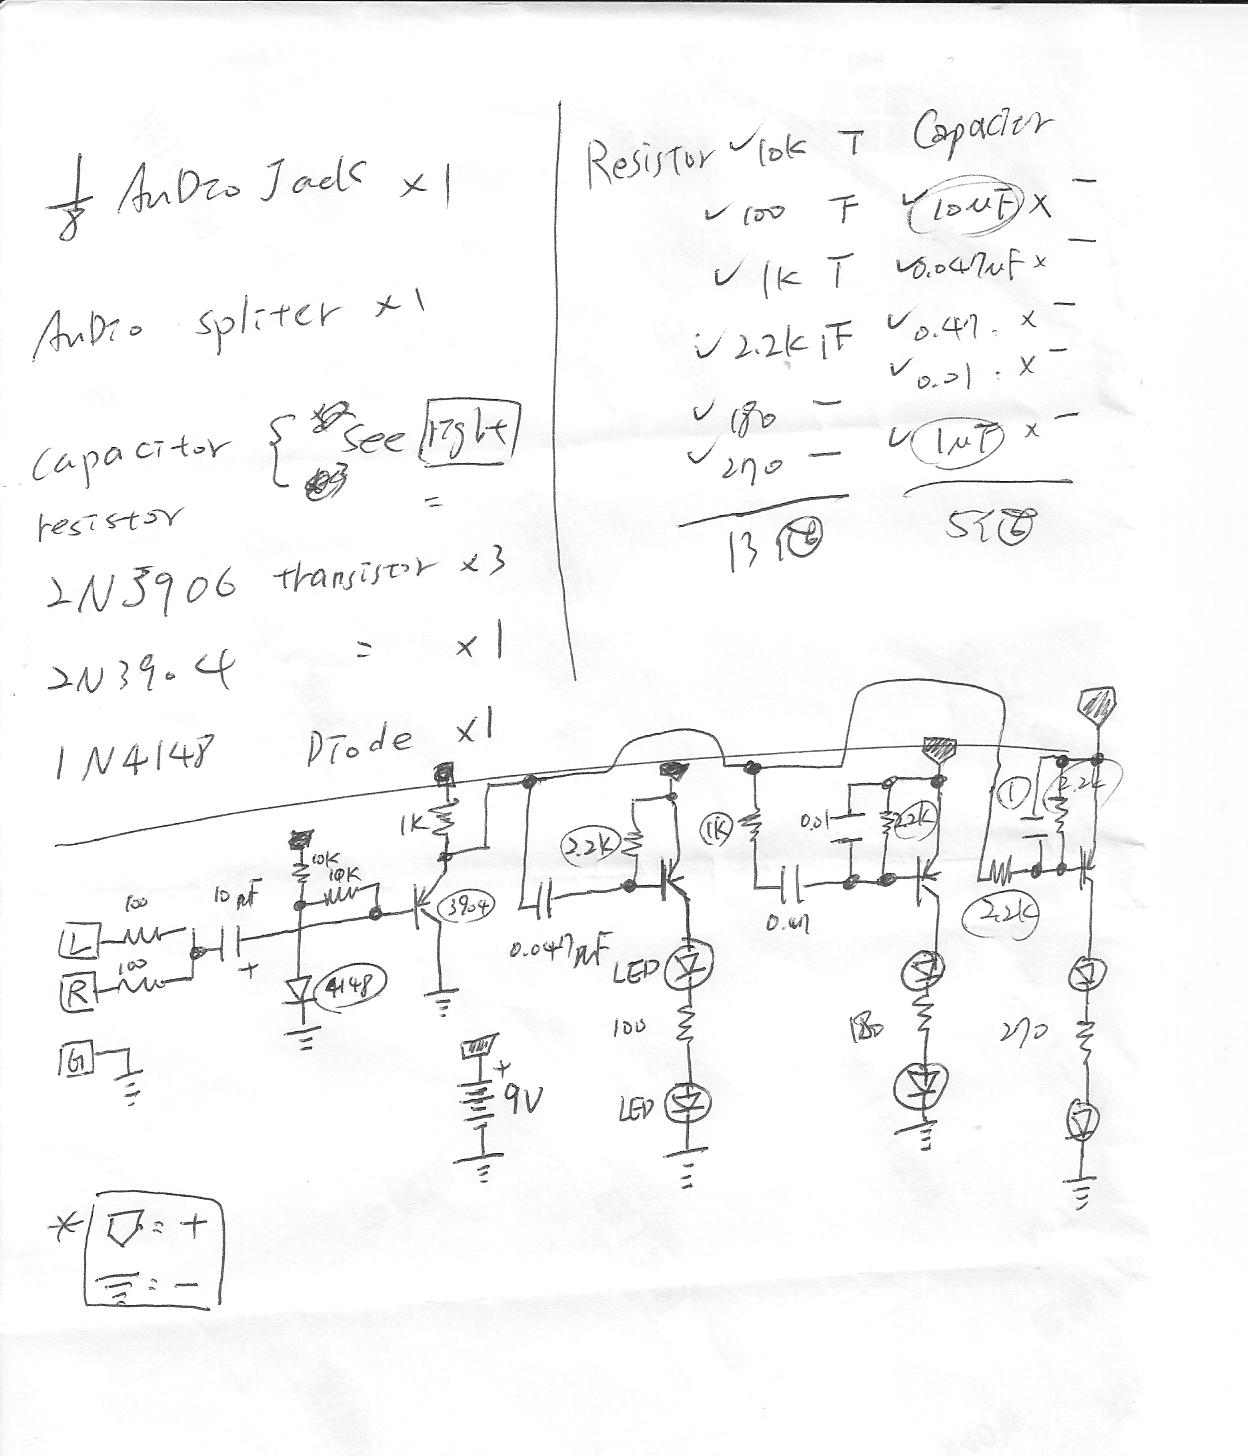 1/8 AuDio Jack x1
AuDio spliter x1
capacitor { see right
resistor =
2N3906 transistor x3
2N3904 = x1
1N4148 Diode x1
Resistor ✓10k T
✓100 F
✓1k T
✓2.2k
✓180 —
✓270 —
13個
Capacitor
✓10uF x —
✓0.047uF x —
✓0.47 . x —
✓0.01 . x —
✓1uF x —
5個
L
100
R
100
G
10uF
+
10K
10K
4148
1K
3904
+
9V
0.047uF
2.2K
LED
100
LED
1K
0.47
0.01
2.2K
180
2.2K
1
2.2K
270
* = +
= —